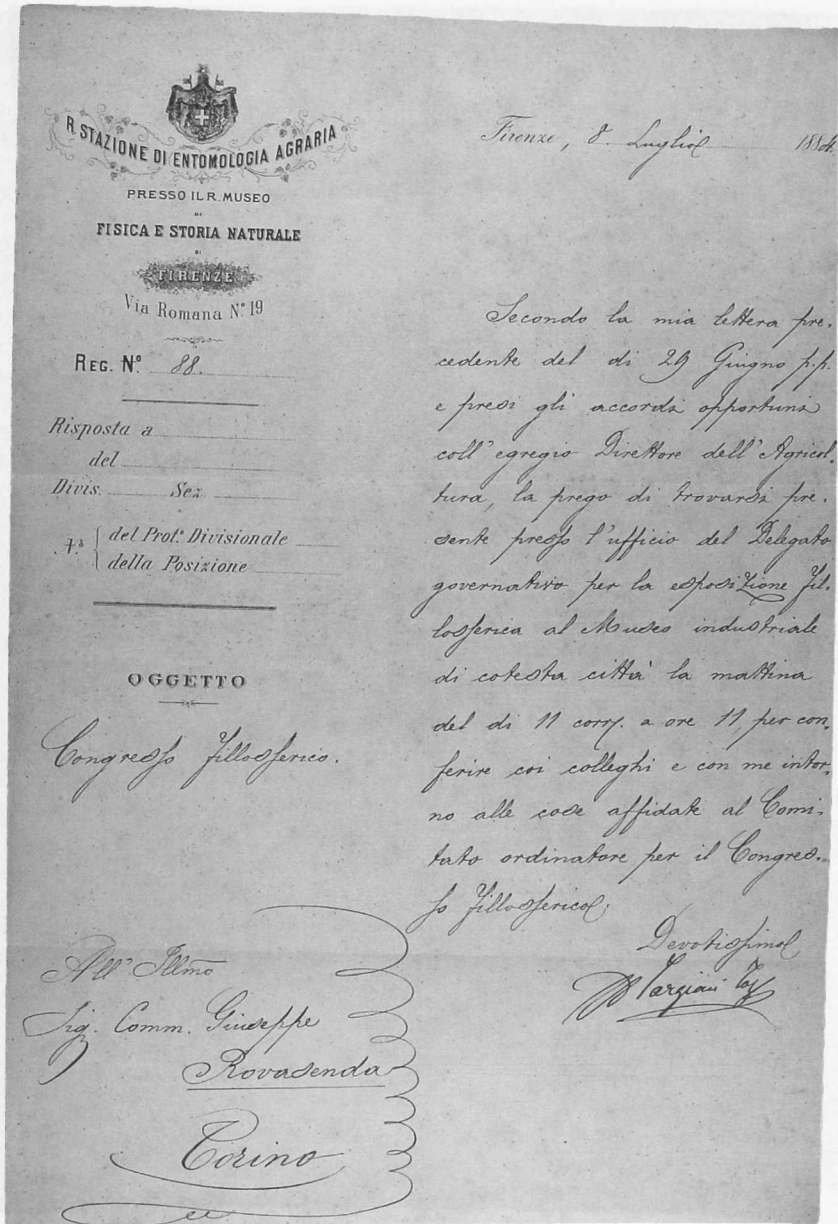 R. STAZIONE DI ENTOMOLOGIA AGRARIA
PRESSO IL R. MUSEO
DI
FISICA E STORIA NATURALE
DI
FIRENZE
Via Romana N° 19
REG. N.° 88.
Risposta a
del
Divis. Sez
del Prot.° Divisionale
della Posizione
OGGETTO
Congresso fillosserico.
All' Illmo
Sig. Comm. Giuseppe
Rovasenda
Torino
Firenze, 8. Luglio 1884
Secondo la mia lettera pre-
cedente del di 29 Giugno p.p.
e presi gli accordi opportuni
coll'egregio Direttore dell'Agricol-
tura, la prego di trovarsi pre-
sente presso l'ufficio del Delegato
governativo per la esposizione fil-
losserica al Museo industriale
di cotesta città la mattina
del di 11 corr. a ore 11, per con-
ferire coi colleghi e con me intor-
no alle cose affidate al Comi-
tato ordinatore per il Congres-
so fillosserico.
Devotissimo
Targioni Toz